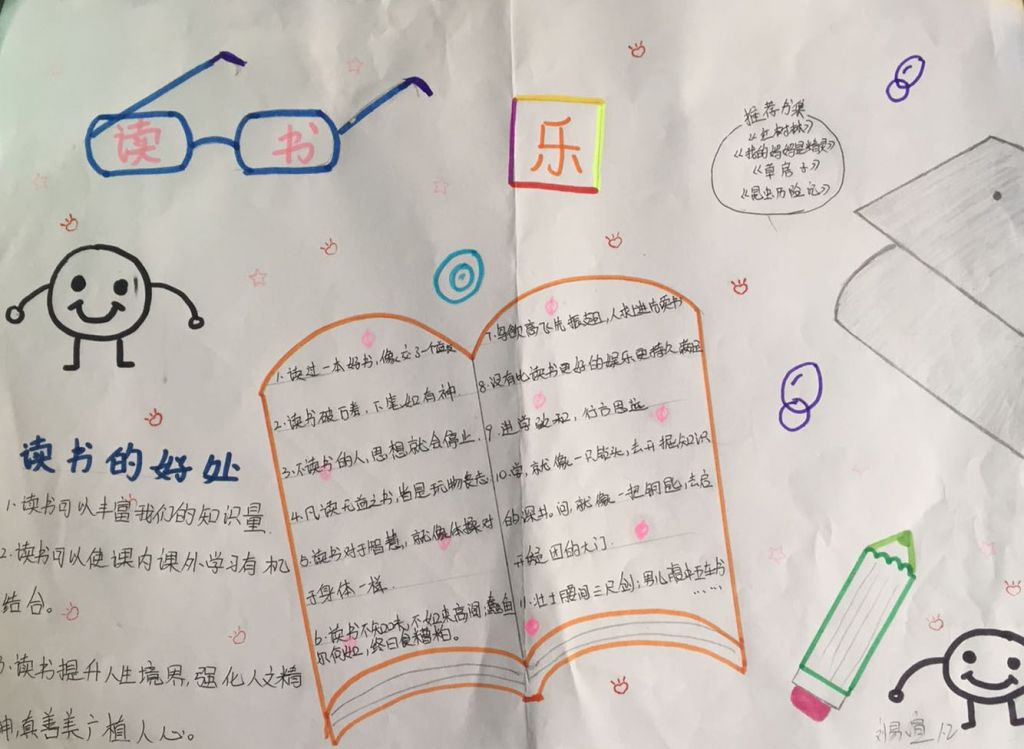 读书
乐
推荐书集
《红树林》
《我的妈妈是精灵》
《草房子》
《昆虫历险记》
读书的好处
1.读书可以丰富我们的知识量.
2.读书可以使课内课外学习有机
结合。
3.读书提升人生境界,强化人文精
神,真善美广植人心。
1.读过一本好书,像交了一个益友
2.读书破万卷,下笔如有神.
3.不读书的人,思想就会停止.
4.凡读无益之书,皆是玩物丧志.
5.读书对于智慧,就像体操对
于身体一样.
6.读书不知
终日食糟粕。
7.鸟欲高飞先振翅,人求上进先读书
8.没有比读书更好的娱乐更持久满足
9.进学致和,行方思远
10.学,就像一只钻头,去开掘知识
的深井。问,就像一把钥匙,去启
开疑团的大门.
11.壮士腰间三尺剑;男儿腹中五车书
......